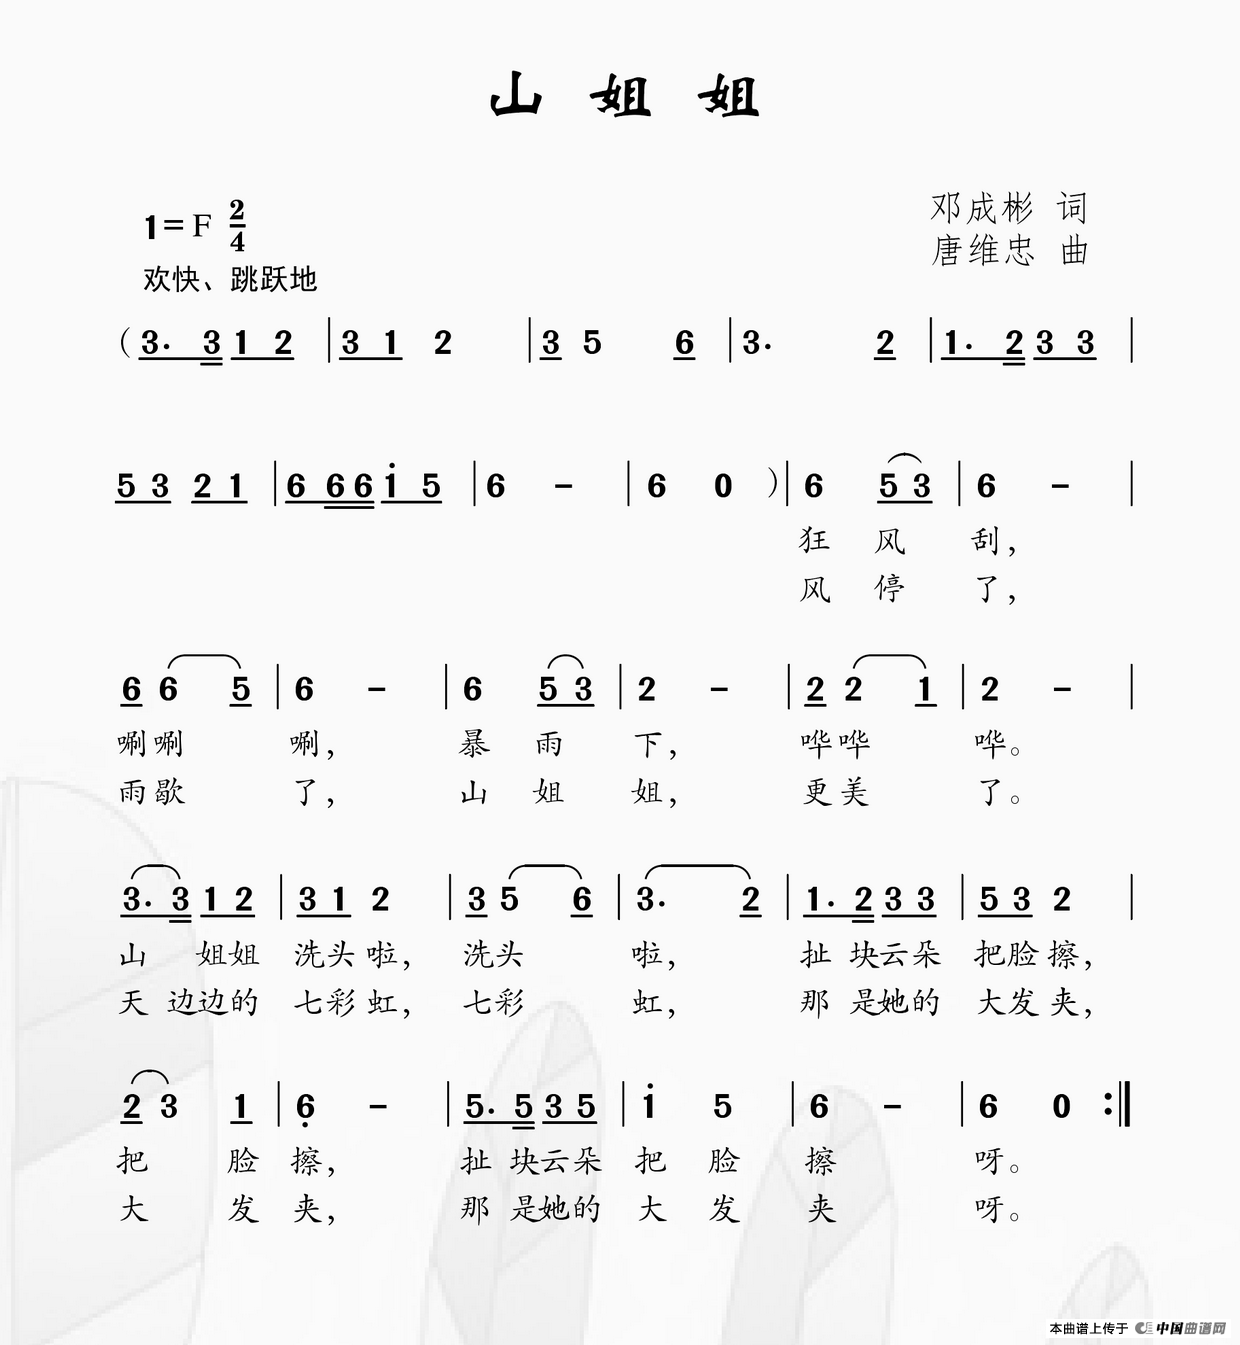 山 姐 姐
邓成彬 词
1=F 2/4
唐维忠 曲
欢快、跳跃地
（3. 3 1 2 | 3 1 2 | 3 5 6 | 3. 2 | 1. 2 3 3 |
5 3 2 1 | 6 6 6 i 5 | 6 - | 6 0 ）| 6 5 3 | 6 - |
狂 风 刮，
风 停 了，
6 6 5 | 6 - | 6 5 3 | 2 - | 2 2 1 | 2 - |
唰唰 唰， 暴 雨 下， 哗哗 哗。
雨歇 了， 山 姐 姐， 更美 了。
3. 3 1 2 | 3 1 2 | 3 5 6 | 3. 2 | 1. 2 3 3 | 5 3 2 |
山 姐姐 洗头 啦， 洗头 啦， 扯 块云朵 把脸 擦，
天 边边的 七彩 虹， 七彩 虹， 那 是她的 大发 夹，
2 3 1 | 6̣ - | 5. 5 3 5 | i 5 | 6 - | 6 0 :‖
把 脸 擦， 扯 块云朵 把 脸 擦 呀。
大 发 夹， 那 是她的 大 发 夹 呀。
本曲谱上传于 中国曲谱网